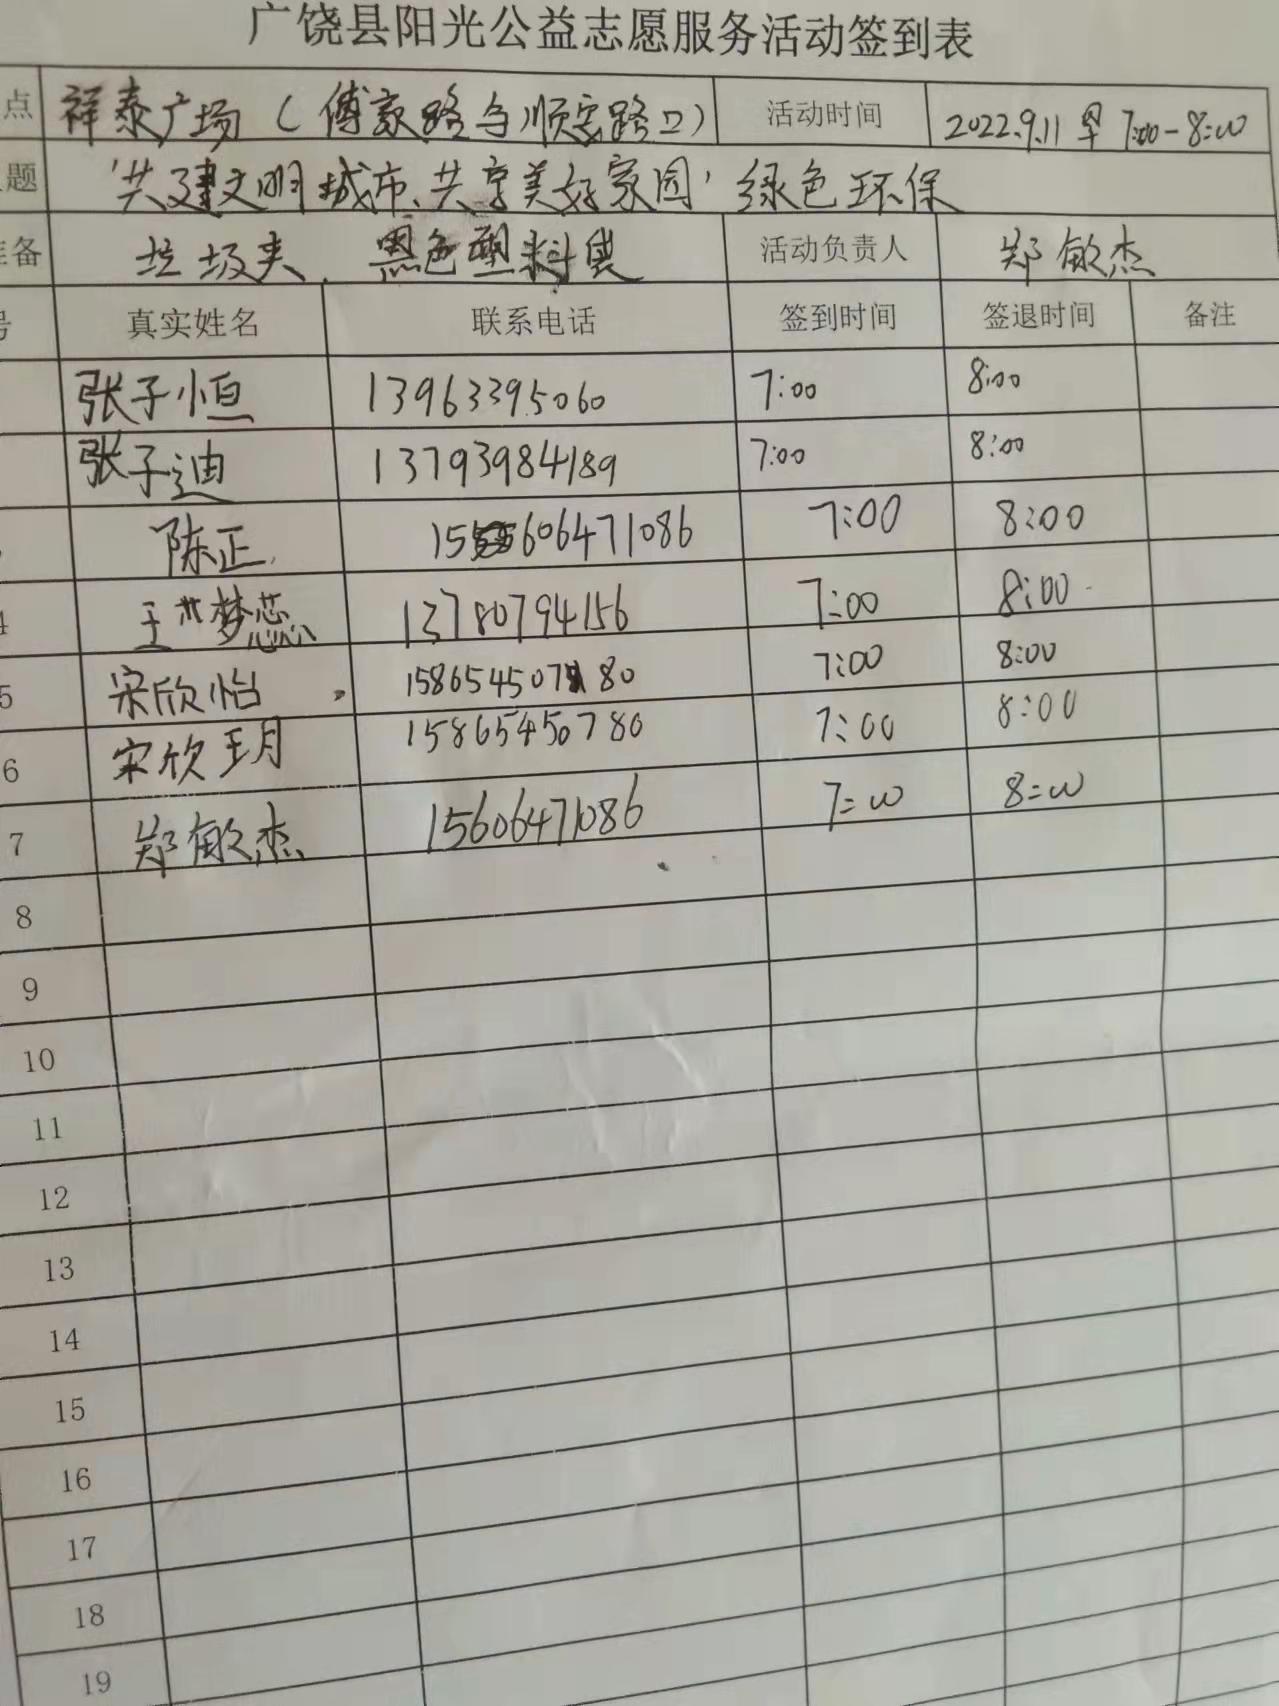 广饶县阳光公益志愿服务活动签到表
点 祥泰广场(傅家路与顺安路口) 活动时间 2022.9.11 早 7:00-8:00
题 '共建文明城市、共享美好家园' 绿色环保
准备 垃圾夹、黑色塑料袋 活动负责人 郑敏杰
号 真实姓名 联系电话 签到时间 签退时间 备注
张子恒 13963395060 7:00 8:00
张子迪 13793984189 7:00 8:00
陈正 15606471086 7:00 8:00
4 王梦蕊 13780794156 7:00 8:00
5 宋欣怡 15865450780 7:00 8:00
6 宋欣玥 15865450780 7:00 8:00
7 郑敏杰 15606471086 7:00 8:00
8
9
10
11
12
13
14
15
16
17
18
19